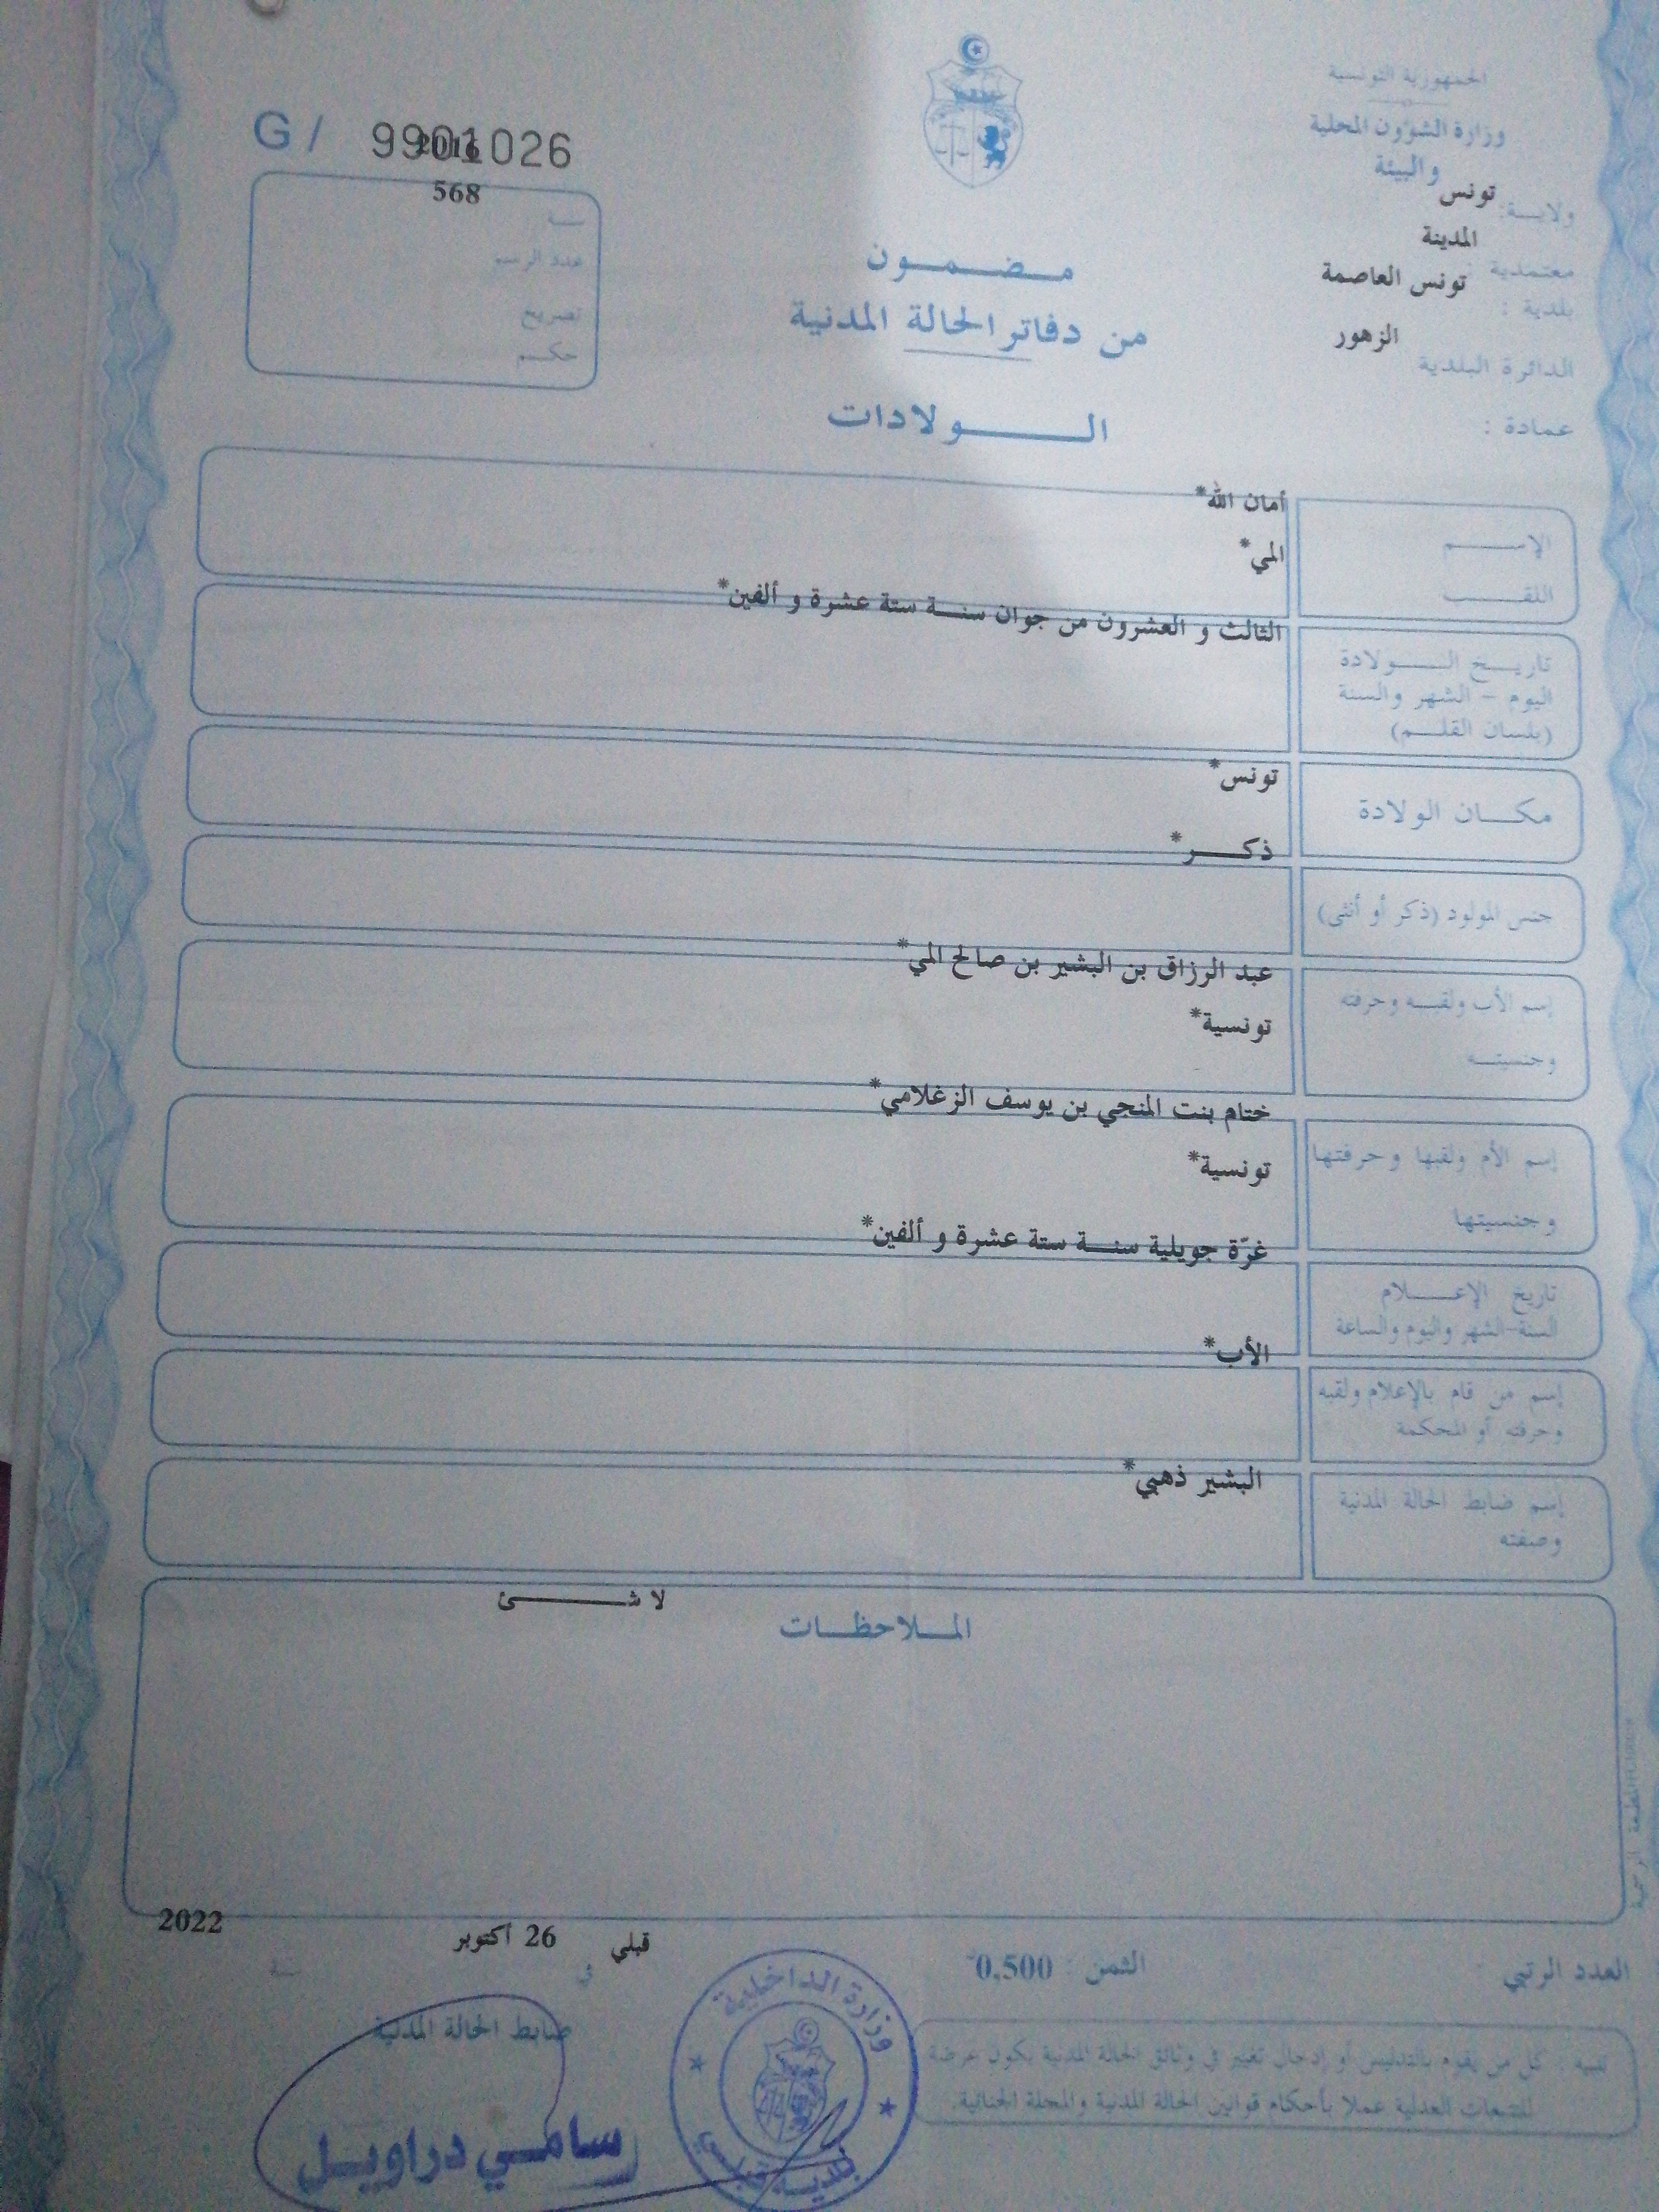 الجمهورية التونسية
وزارة الشؤون المحلية
والبيئة
ولايــة: تونس
معتمدية : المدينة
بلدية : تونس العاصمة
الدائرة البلدية الزهور
عمادة :
G/ 9901026
2016
568
سنة
عدد الرسم
تصريح
حكم
مضمون
من دفاتر الحالة المدنية
الولادات
الإسم أمان الله*
اللقب المي*
تاريخ الولادة
اليوم - الشهر والسنة
(بلسان القلم)
الثالث و العشرون من جوان سنة ستة عشرة و ألفين*
مكان الولادة تونس*
جنس المولود (ذكر أو أنثى) ذكر*
إسم الأب ولقبه وحرفته عبد الرزاق بن البشير بن صالح المي*
وجنسيته تونسية*
إسم الأم ولقبها وحرفتها ختام بنت المنجي بن يوسف الزغلامي*
وجنسيتها تونسية*
تاريخ الإعلام غرّة جويلية سنة ستة عشرة و ألفين*
السنة-الشهر واليوم والساعة
إسم من قام بالإعلام ولقبه الأب*
وحرفته أو المحكمة
إسم ضابط الحالة المدنية البشير ذهبي*
وصفته
لا شئ
الملاحظات
قبلي 26 أكتوبر 2022
في سنة
العدد الرتبي الثمن : 0,500
ضابط الحالة المدنية
تنبيه : كل من يقوم بالتدليس أو إدخال تغيير في وثائق الحالة المدنية يكون عرضة
للتتبعات العدلية عملا بأحكام قوانين الحالة المدنية والمجلة الجنائية.
وزارة الداخلية
بلدية قبلي
سامي دراويل